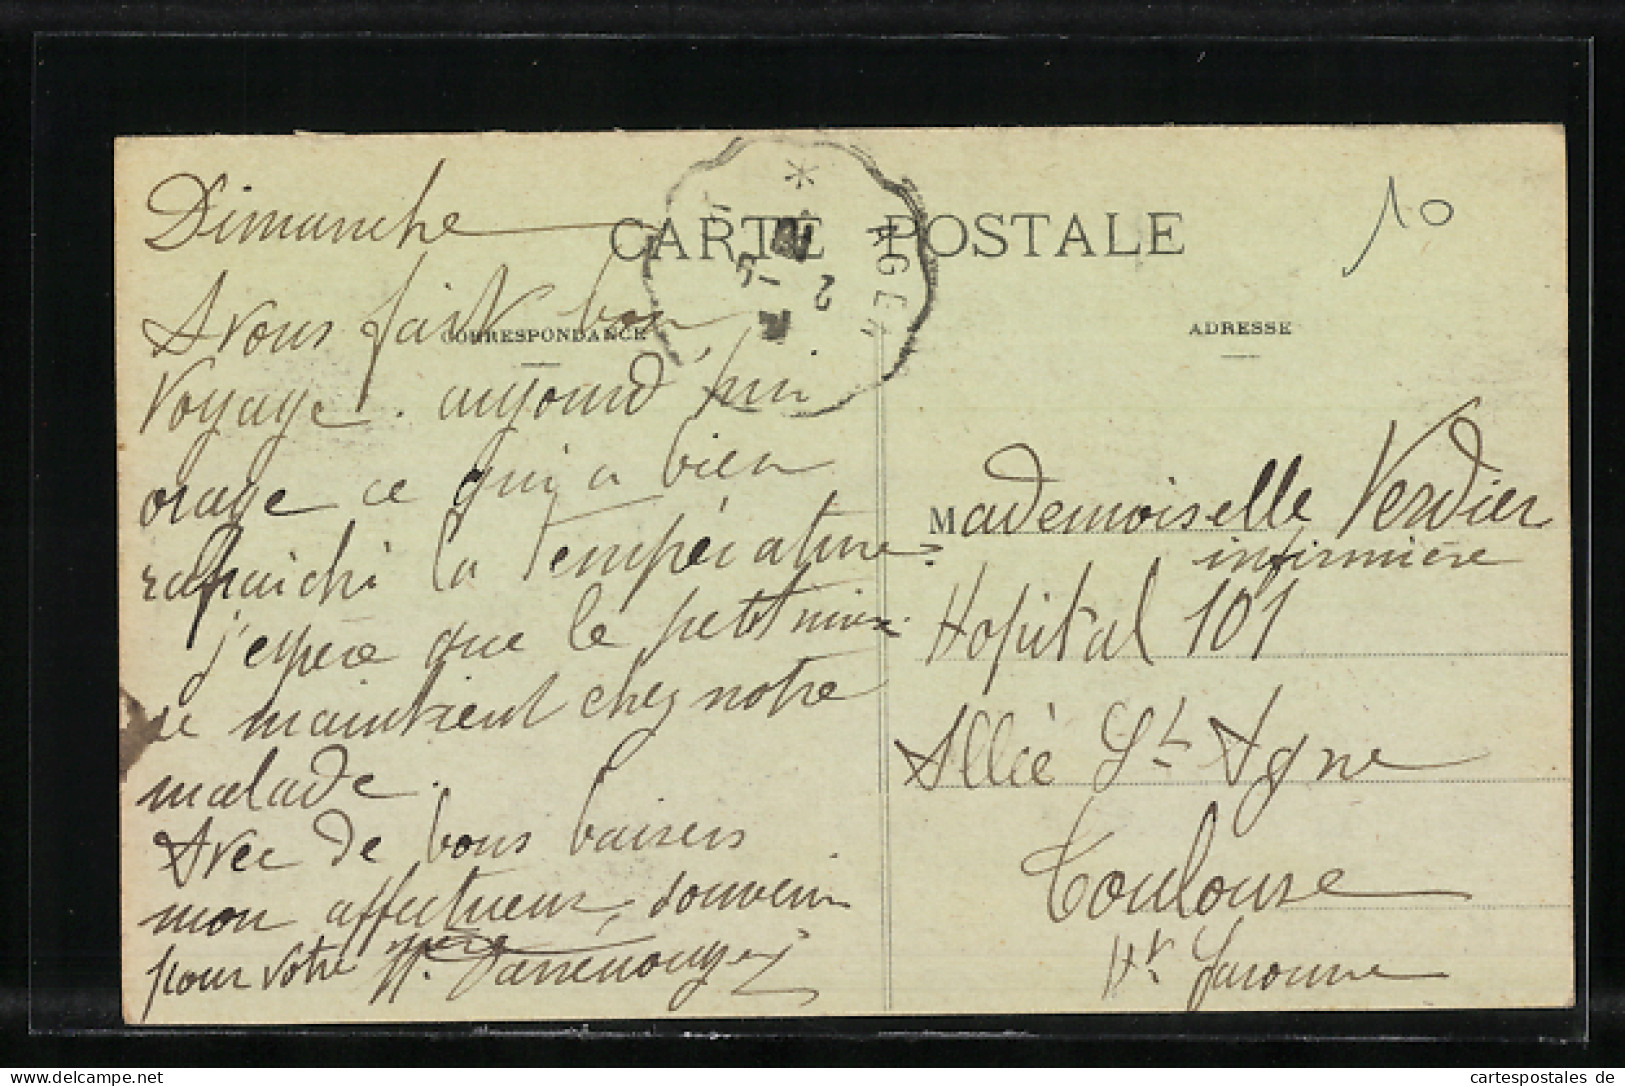 CARTE POSTALE
CORRESPONDANCE
ADRESSE
10
AGEN
2
Dimanche
Avous fait bon
voyage. aujourd'hui
orage ce qui a bien
rafraichi la température
j'espère que le petit mieux
se maintient chez notre
malade.
Avec de bons baisers
mon affectueux souvenir
pour votre père
Mademoiselle Verdier
infirmière
Hopital 101
Allée St Agne
Toulouse
Hte Garonne
Picclick Exclusive
www.delcampe.net
cartespostales de